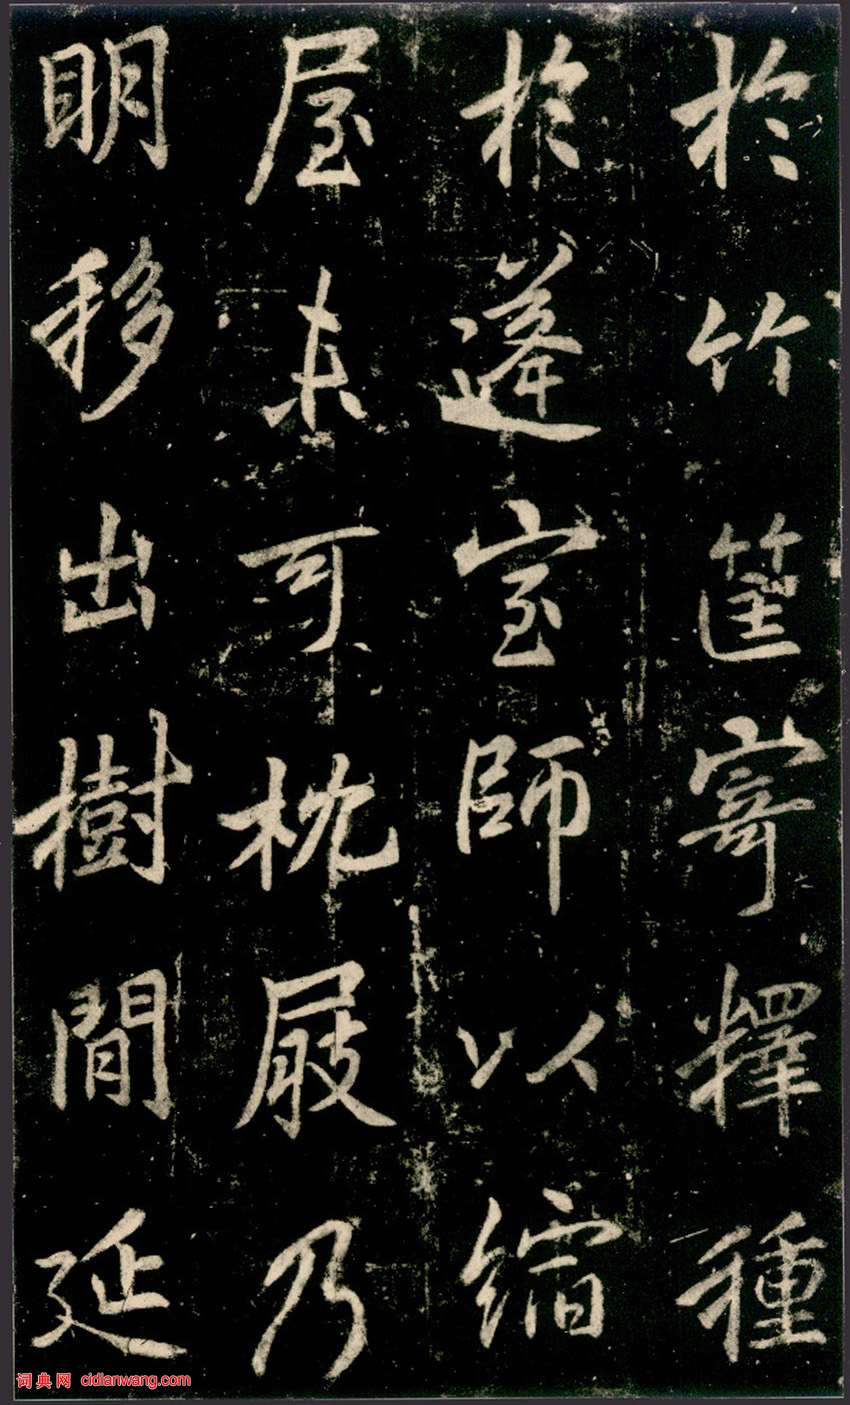 於竹筐寄釋種
於蓬室師以縮
屋未可枕屐乃
明移出樹間延
词典网 cidianwang.com